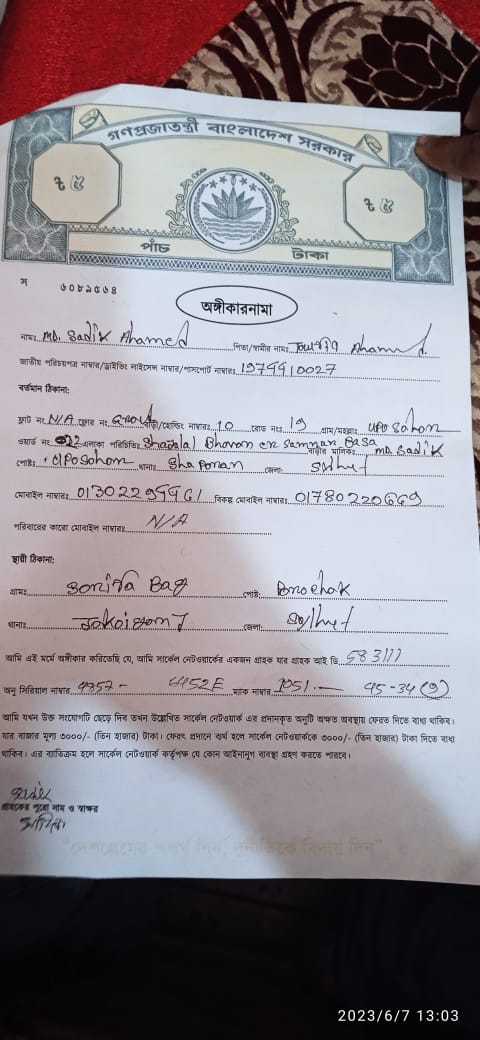 গণপ্রজাতন্ত্রী বাংলাদেশ সরকার
৳ ৫
৳ ৫
পাঁচ টাকা
স ৬০৮৯৫৬৪
অঙ্গীকারনামা
নামঃ MD. Sadik Ahamed পিতা/স্বামীর নামঃ Ahamed
জাতীয় পরিচয়পত্র নাম্বার/ড্রাইভিং লাইসেন্স নাম্বার/পাসপোর্ট নাম্বারঃ
বর্তমান ঠিকানা:
ফ্লাট নং N/A ফ্লোর নং হোল্ডিং নাম্বারঃ 10 রোড নংঃ 19 গ্রাম/মহল্লাঃ UPO Sohon
ওয়ার্ড নং 22 এলাকা পরিচিতিঃ Shajalal Bhovon Basa বাড়ীর মালিকঃ MD. Sadik
পোষ্টঃ UPOSohon থানাঃ Sha Poran জেলাঃ Sylhet
মোবাইল নাম্বারঃ বিকল্প মোবাইল নাম্বারঃ 01780220669
পরিবারের কারো মোবাইল নাম্বারঃ N/A
স্থায়ী ঠিকানা:
গ্রামঃ পোষ্টঃ
থানাঃ জেলাঃ Sylhet
আমি এই মর্মে অঙ্গীকার করিতেছি যে, আমি সার্কেল নেটওয়ার্কের একজন গ্রাহক যার গ্রাহক আই ডি. 583111
অনু সিরিয়াল নাম্বার 9857- 4152E ম্যাক নাম্বার 1051 - 45-34 (9)
আমি যখন উক্ত সংযোগটি ছেড়ে দিব তখন উল্লেখিত সার্কেল নেটওয়ার্ক এর প্রদানকৃত অনুটি অক্ষত অবস্থায় ফেরত দিতে বাধ্য থাকিব।
যার বাজার মূল্য ৩০০০/- (তিন হাজার) টাকা। ফেরৎ প্রদানে ব্যর্থ হলে সার্কেল নেটওয়ার্ককে ৩০০০/- (তিন হাজার) টাকা দিতে বাধ্য
থাকিব। এর ব্যতিক্রম হলে সার্কেল নেটওয়ার্ক কর্তৃপক্ষ যে কোন আইনানুগ ব্যবস্থা গ্রহণ করতে পারবে।
Sadik
গ্রাহকের পুরো নাম ও স্বাক্ষর
সাদিক
"দেশপ্রেমের শপথ নিন, দুর্নীতিকে বিদায় দিন"
2023/6/7 13:03